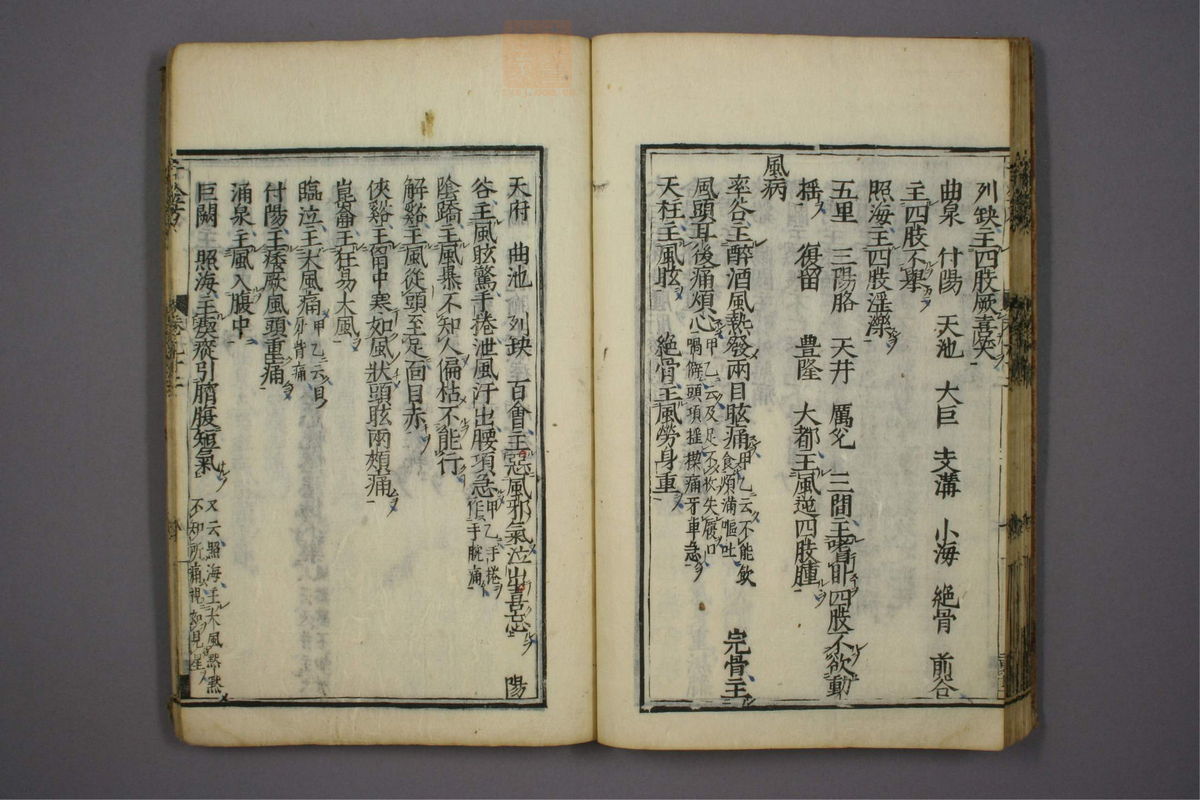 列缺主四肢厥喜笑
曲泉 付陽 天池 大巨 支溝 小海 絕骨 前谷
主四肢不舉
照海主四肢淫濼
五里 三陽胳 天井 厲兌 三間主嗜臥四肢不欲動
搖 復留 豊隆 大都主風逆四肢腫
風病
率谷主醉酒風熱發兩目眩痛甲乙云不能飲食煩滿嘔吐 完骨主
風頭耳後痛煩心甲乙云及足不收失履口喎僻頭項搖瘈痛牙車急
天柱主風眩 絕骨主風勞身重
天府 曲池 列缺 百會主惡風邪氣泣出喜忘 陽
谷主風眩驚手捲泄風汗出腰項急甲乙手捲作手腕痛
陰蹻主風暴不知人偏枯不能行
解谿主風從頭至足面目赤
俠谿主胷中寒如風狀頭眩兩頰痛
崑崙主狂易大風
臨泣主大風痛甲乙云身痹背痛
付陽主痿厥風頭重痛
涌泉主風入腹中
巨闕 照海主瘈瘲引臍腹短氣又云照海主大風默默不知所痛視如見星